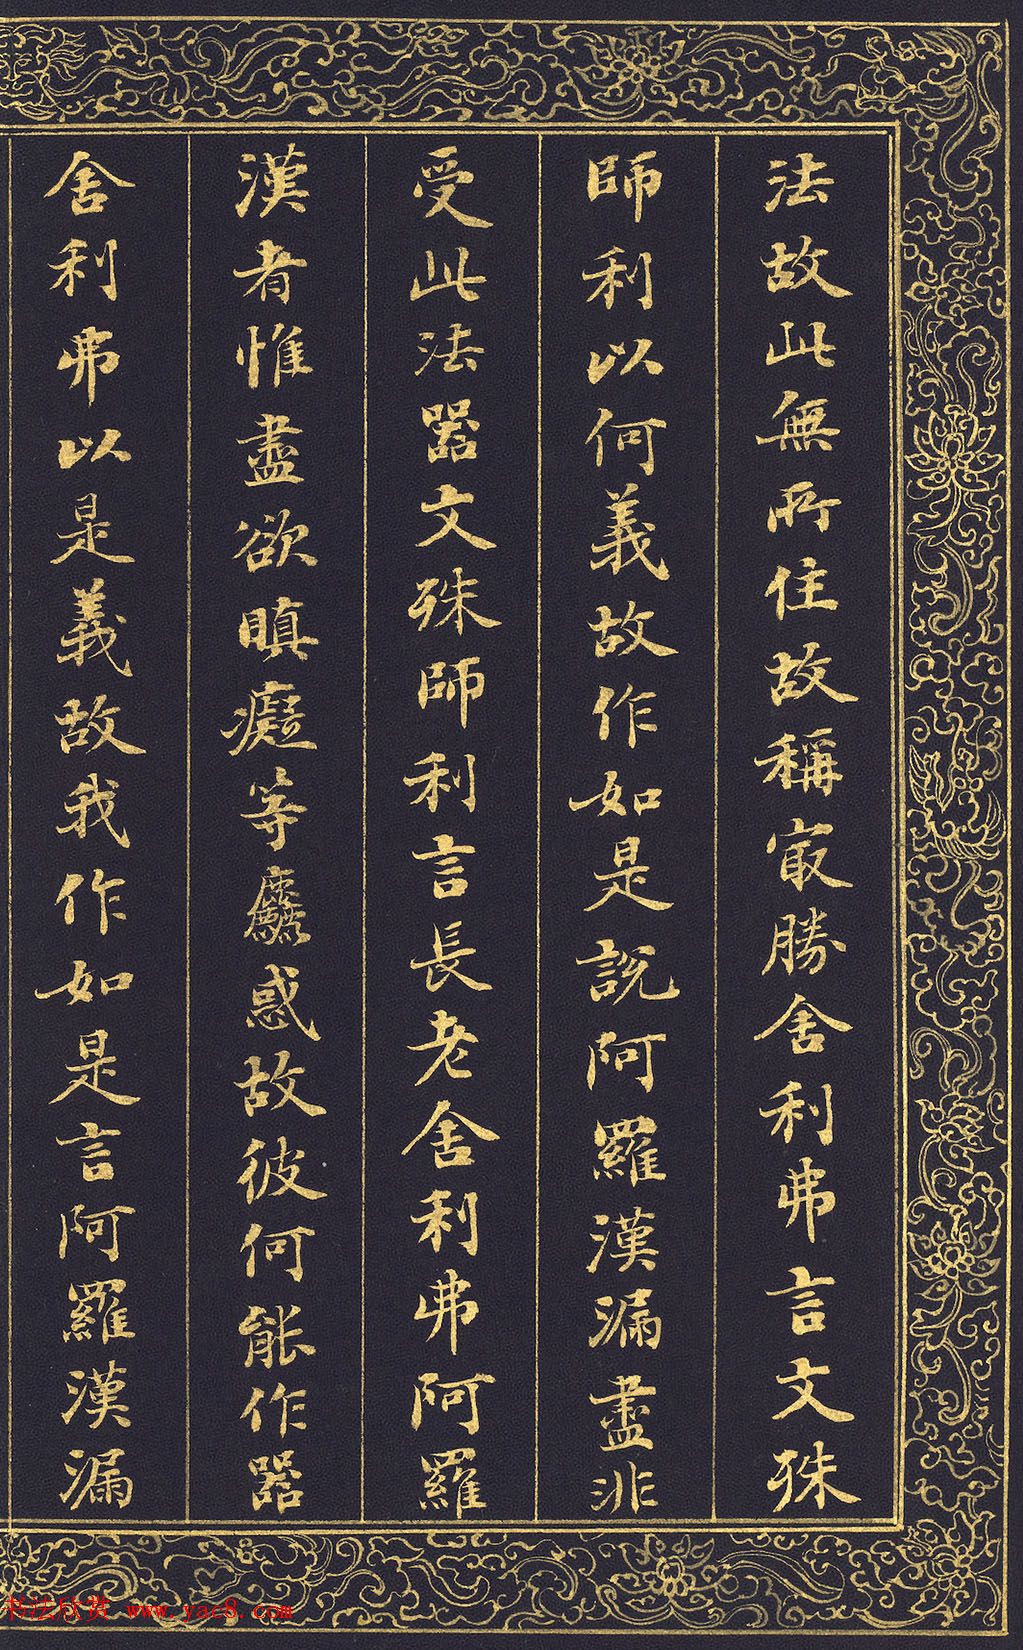 法故此無所住故稱冣勝舍利弗言文殊
師利以何義故作如是說阿羅漢漏盡非
受此法器文殊師利言長老舍利弗阿羅
漢者惟盡欲瞋癡等麤惑故彼何能作器
舍利弗以是義故我作如是言阿羅漢漏
书法欣赏 www.yac8.com